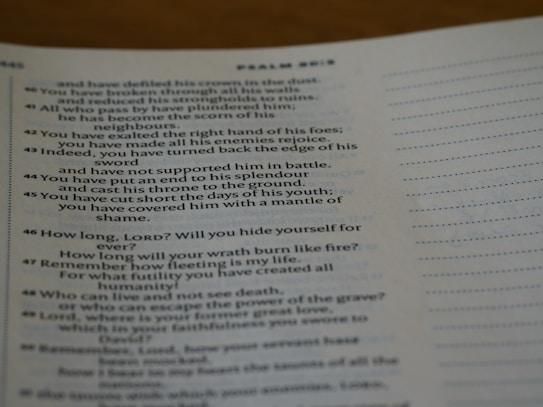 445 PSALM
and have defiled his crown in the dust.
40 You have broken through all his walls
and reduced his strongholds to ruins.
41 All who pass by have plundered him;
he has become the scorn of his
neighbours.
42 You have exalted the right hand of his foes;
you have made all his enemies rejoice.
43 Indeed, you have turned back the edge of his
sword
and have not supported him in battle.
44 You have put an end to his splendour
and cast his throne to the ground.
45 You have cut short the days of his youth;
you have covered him with a mantle of
shame.
46 How long, LORD? Will you hide yourself for
ever?
How long will your wrath burn like fire?
47 Remember how fleeting is my life.
For what futility you have created all
humanity!
48 Who can live and not see death,
or who can escape the power of the grave?
49 Lord, where is your former great love,
which in your faithfulness you swore to
David?
50 Remember, Lord, how your servant has
been mocked,
how I bear in my heart the taunts of all the
nations,
51 the taunts with which your enemies, LORD,